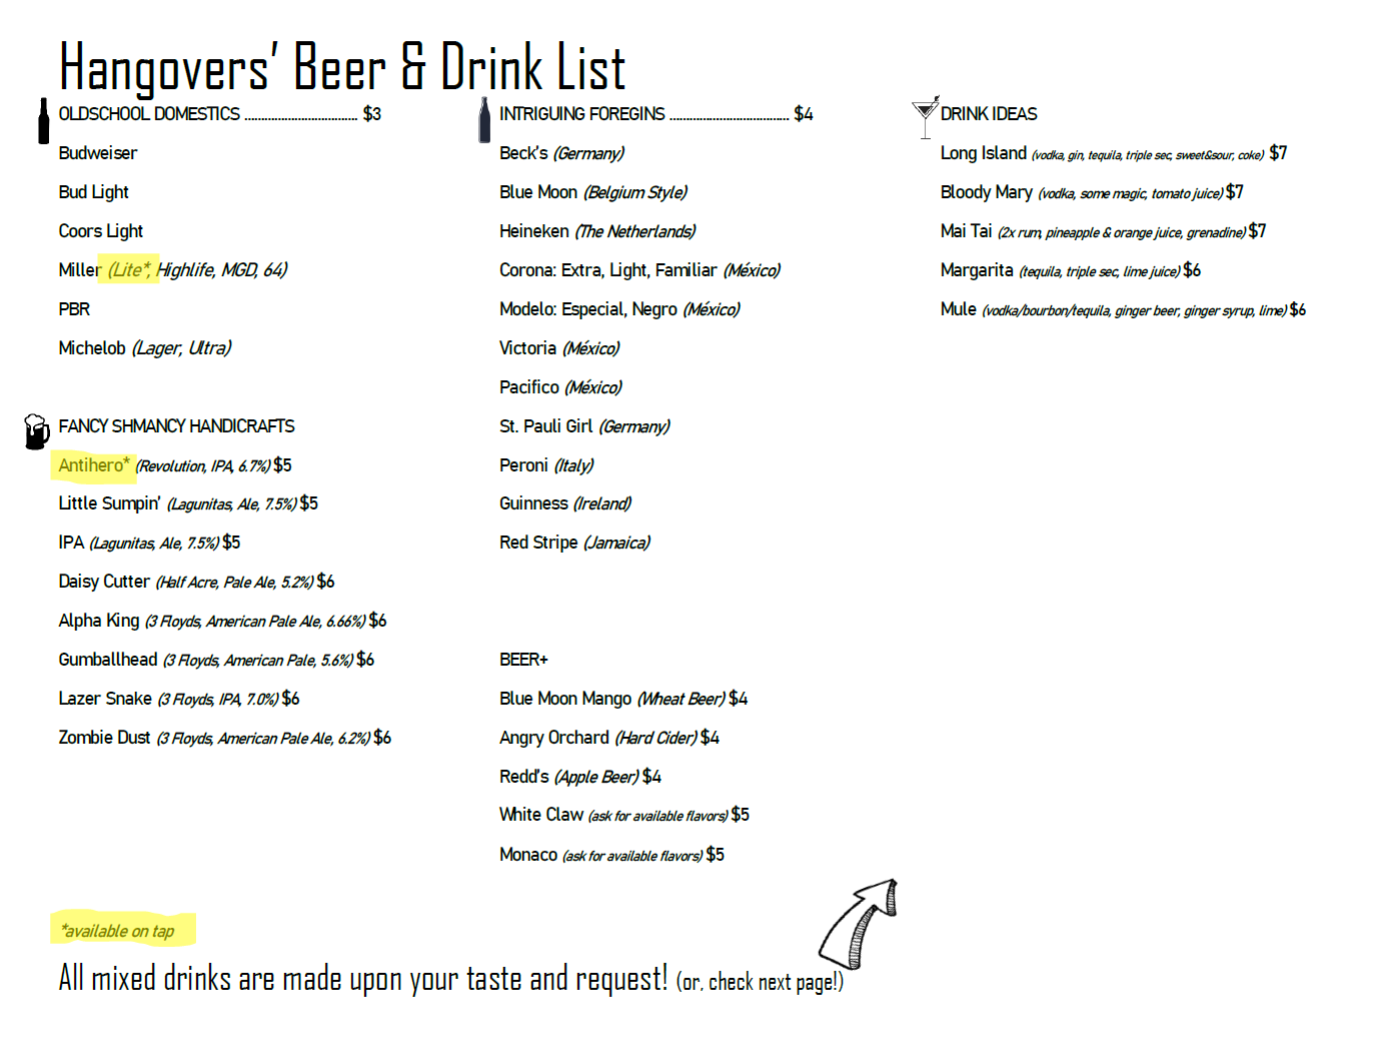 Hangovers' Beer & Drink List
OLDSCHOOL DOMESTICS .................................. $3
Budweiser
Bud Light
Coors Light
Miller (Lite*, Highlife, MGD, 64)
PBR
Michelob (Lager, Ultra)
FANCY SHMANCY HANDICRAFTS
Antihero* (Revolution, IPA, 6.7%) $5
Little Sumpin' (Lagunitas, Ale, 7.5%) $5
IPA (Lagunitas, Ale, 7.5%) $5
Daisy Cutter (Half Acre, Pale Ale, 5.2%) $6
Alpha King (3 Floyds, American Pale Ale, 6.66%) $6
Gumballhead (3 Floyds, American Pale, 5.6%) $6
Lazer Snake (3 Floyds, IPA, 7.0%) $6
Zombie Dust (3 Floyds, American Pale Ale, 6.2%) $6
INTRIGUING FOREGINS .................................... $4
Beck's (Germany)
Blue Moon (Belgium Style)
Heineken (The Netherlands)
Corona: Extra, Light, Familiar (México)
Modelo: Especial, Negro (México)
Victoria (México)
Pacifico (México)
St. Pauli Girl (Germany)
Peroni (Italy)
Guinness (Ireland)
Red Stripe (Jamaica)
BEER+
Blue Moon Mango (Wheat Beer) $4
Angry Orchard (Hard Cider) $4
Redd's (Apple Beer) $4
White Claw (ask for available flavors) $5
Monaco (ask for available flavors) $5
DRINK IDEAS
Long Island (vodka, gin, tequila, triple sec, sweet&sour, coke) $7
Bloody Mary (vodka, some magic, tomato juice) $7
Mai Tai (2x rum, pineapple & orange juice, grenadine) $7
Margarita (tequila, triple sec, lime juice) $6
Mule (vodka/bourbon/tequila, ginger beer, ginger syrup, lime) $6
*available on tap
All mixed drinks are made upon your taste and request! (or, check next page!)